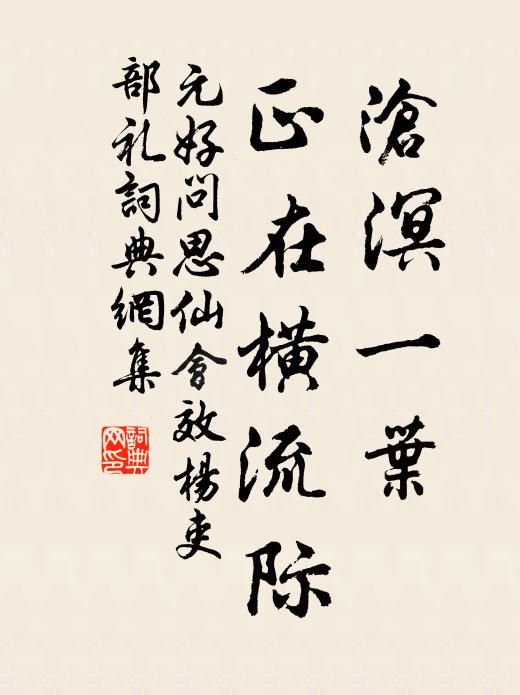 滄溟一葉
正在橫流际
元好問思仙會效楊吏
部礼詞典網集
詞典
网印